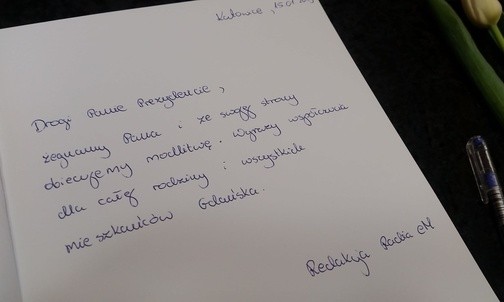 Katowice, 15.01
Drogi Panie Prezydencie,
żegnamy Pana i ze swojej strony
obiecujemy modlitwę. Wyrazy współczucia
dla całej rodziny i wszystkich
mieszkańców Gdańska.
Redakcja Radia eM